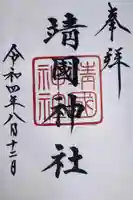 奉拝
靖國神社
靖國神社
令和四年八月十二日